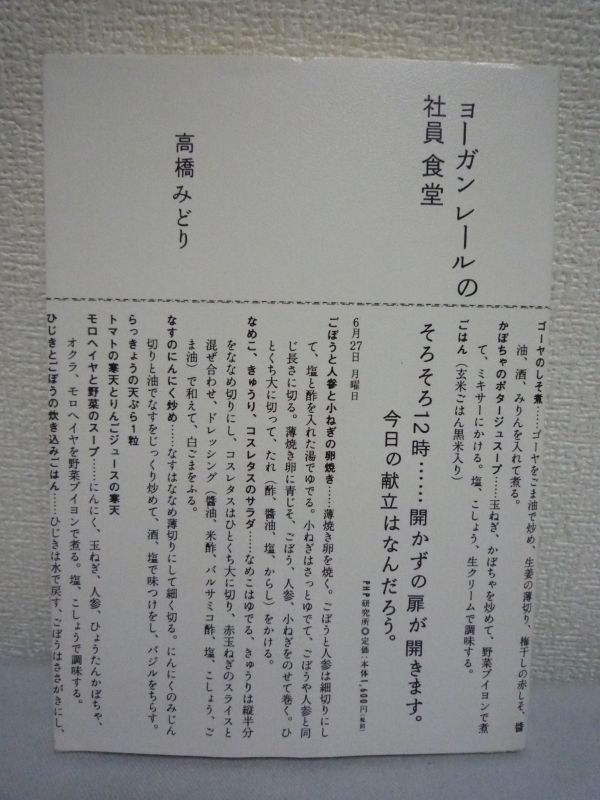 ヨーガン レールの
社員食堂
高橋みどり
ゴーヤのしそ煮……ゴーヤをごま油で炒め、生姜の薄切り、梅干しの赤しそ、醤
油、酒、みりんを入れて煮る。
かぼちゃのポタージュスープ……玉ねぎ、かぼちゃを炒めて、野菜ブイヨンで煮
て、ミキサーにかける。塩、こしょう、生クリームで調味する。
ごはん（玄米ごはん黒米入り）
そろそろ12時……開かずの扉が開きます。
今日の献立はなんだろう。
PHP研究所◎定価：本体1,600円（税別）
6月27日 月曜日
ごぼうと人参と小ねぎの卵焼き……薄焼き卵を焼く。ごぼうと人参は細切りにし
て、塩と酢を入れた湯でゆでる。小ねぎはさっとゆでて、ごぼうや人参と同
じ長さに切る。薄焼き卵に青じそ、ごぼう、人参、小ねぎをのせて巻く。ひ
とくち大に切って、たれ（酢、醤油、塩、からし）をかける。
なめこ、きゅうり、コスレタスのサラダ……なめこはゆでる、きゅうりは縦半分
をななめ切りにし、コスレタスはひとくち大に切り、赤玉ねぎのスライスと
混ぜ合わせ、ドレッシング（醤油、米酢、バルサミコ酢、塩、こしょう、ご
ま油）で和えて、白ごまをふる。
なすのにんにく炒め……なすはななめ薄切りにして細く切る。にんにくのみじん
切りと油でなすをじっくり炒めて、酒、塩で味つけをし、バジルをちらす。
らっきょうの天ぷら1粒
トマトの寒天とりんごジュースの寒天
モロヘイヤと野菜のスープ……にんにく、玉ねぎ、人参、ひょうたんかぼちゃ、
オクラ、モロヘイヤを野菜ブイヨンで煮る。塩、こしょうで調味する。
ひじきとごぼうの炊き込みごはん……ひじきは水で戻す、ごぼうはささがきにし、